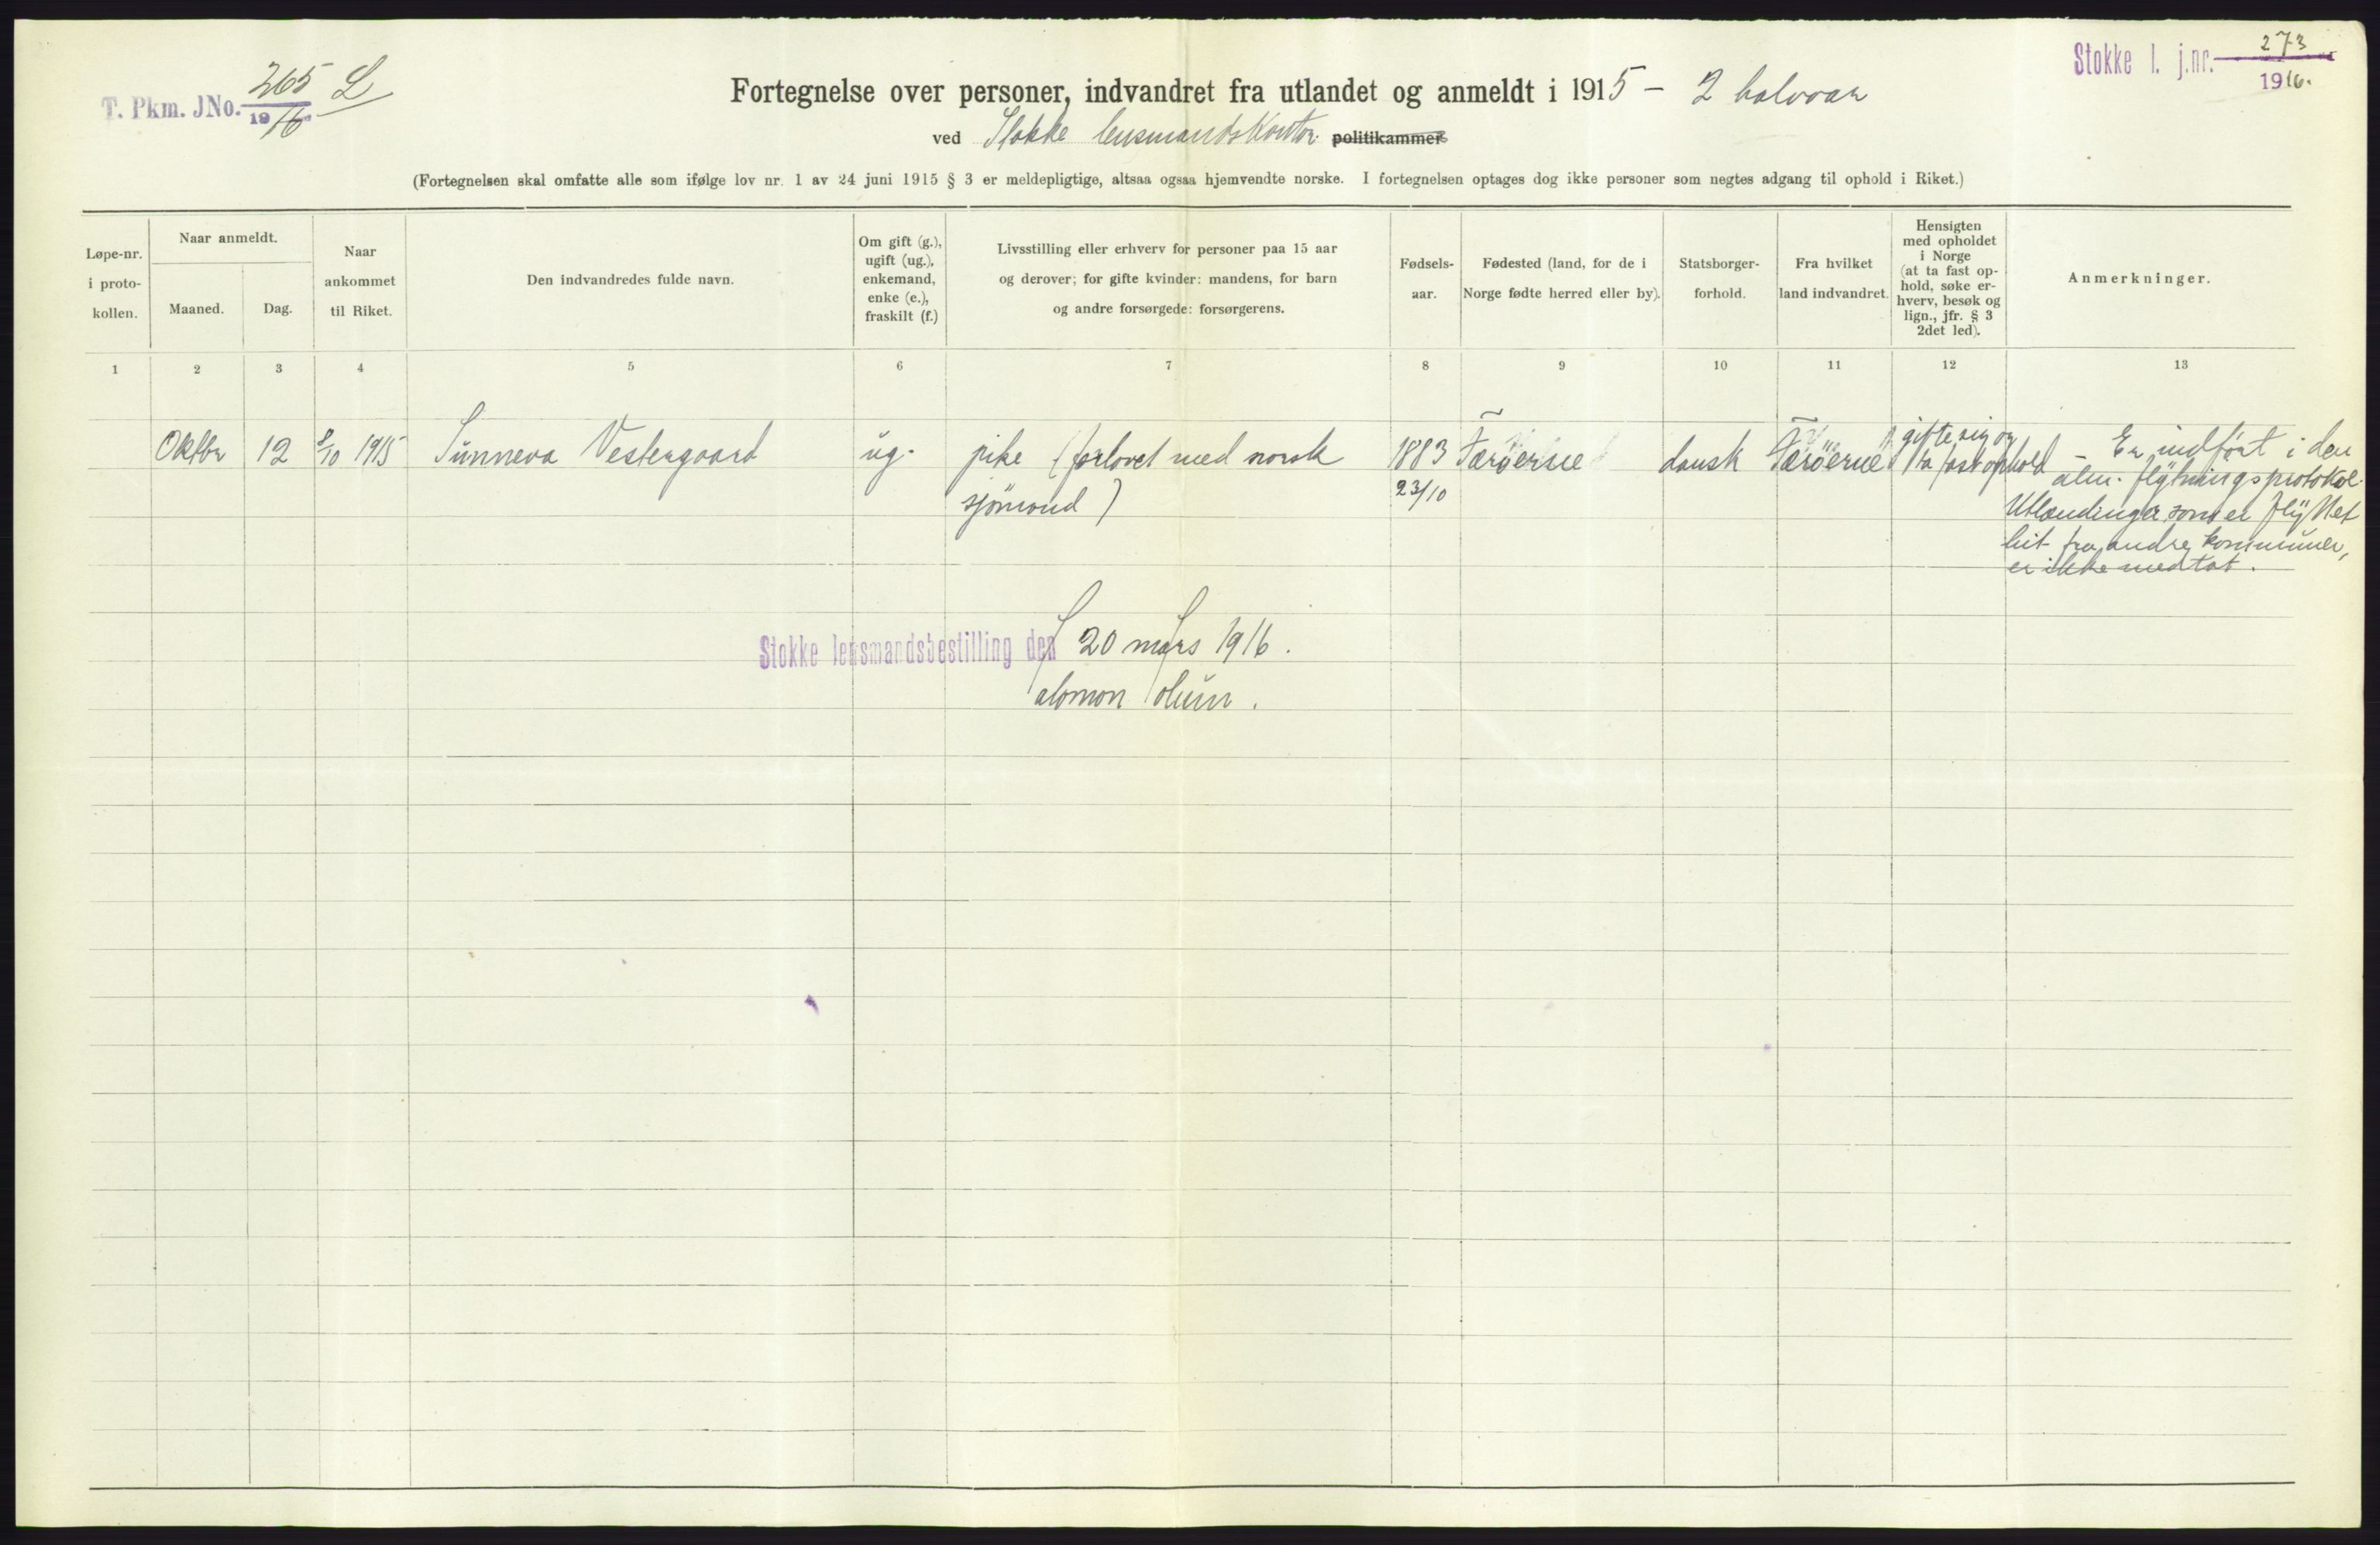 T. Pkm. JNo. 265 L
1916
Stokke l. j.nr. 273
1916.
Fortegnelse over personer, indvandret fra utlandet og anmeldt i 1915 – 2 halvaar
ved Stokke lensmandskontor politikammer
(Fortegnelsen skal omfatte alle som ifølge lov nr. 1 av 24 juni 1915 § 3 er meldepligtige, altsaa ogsaa hjemvendte norske. I fortegnelsen optages dog ikke personer som negtes adgang til ophold i Riket.)
Løpe-nr.
i proto-
kollen.
Naar anmeldt.
Maaned.
Dag.
Naar
ankommet
til Riket.
Den indvandredes fulde navn.
Om gift (g.),
ugift (ug.),
enkemand,
enke (e.),
fraskilt (f.)
Livsstilling eller erhverv for personer paa 15 aar
og derover; for gifte kvinder: mandens, for barn
og andre forsørgede: forsørgerens.
Fødsels-
aar.
Fødested (land, for de i
Norge fødte herred eller by).
Statsborger-
forhold.
Fra hvilket
land indvandret.
Hensigten
med opholdet
i Norge
(at ta fast op-
hold, søke er-
hverv, besøk og
lign., jfr. § 3
2det led).
Anmerkninger.
1 2 3 4 5 6 7 8 9 10 11 12 13
Oktbr 12 8/10 1915 Sunneva Vestergaard ug. pike (forlovet med norsk
sjömand)
1883
23/10
Færöerne dansk Færöerne
gifte sig og
ta fast ophold
– Er indfört i den
alm. flytningsprotokol.
Utlændinger som er flyttet
hit fra andre kommuner,
er ikke medtat.
Stokke lensmandsbestilling den 20 mars 1916.
Salomon Solum.